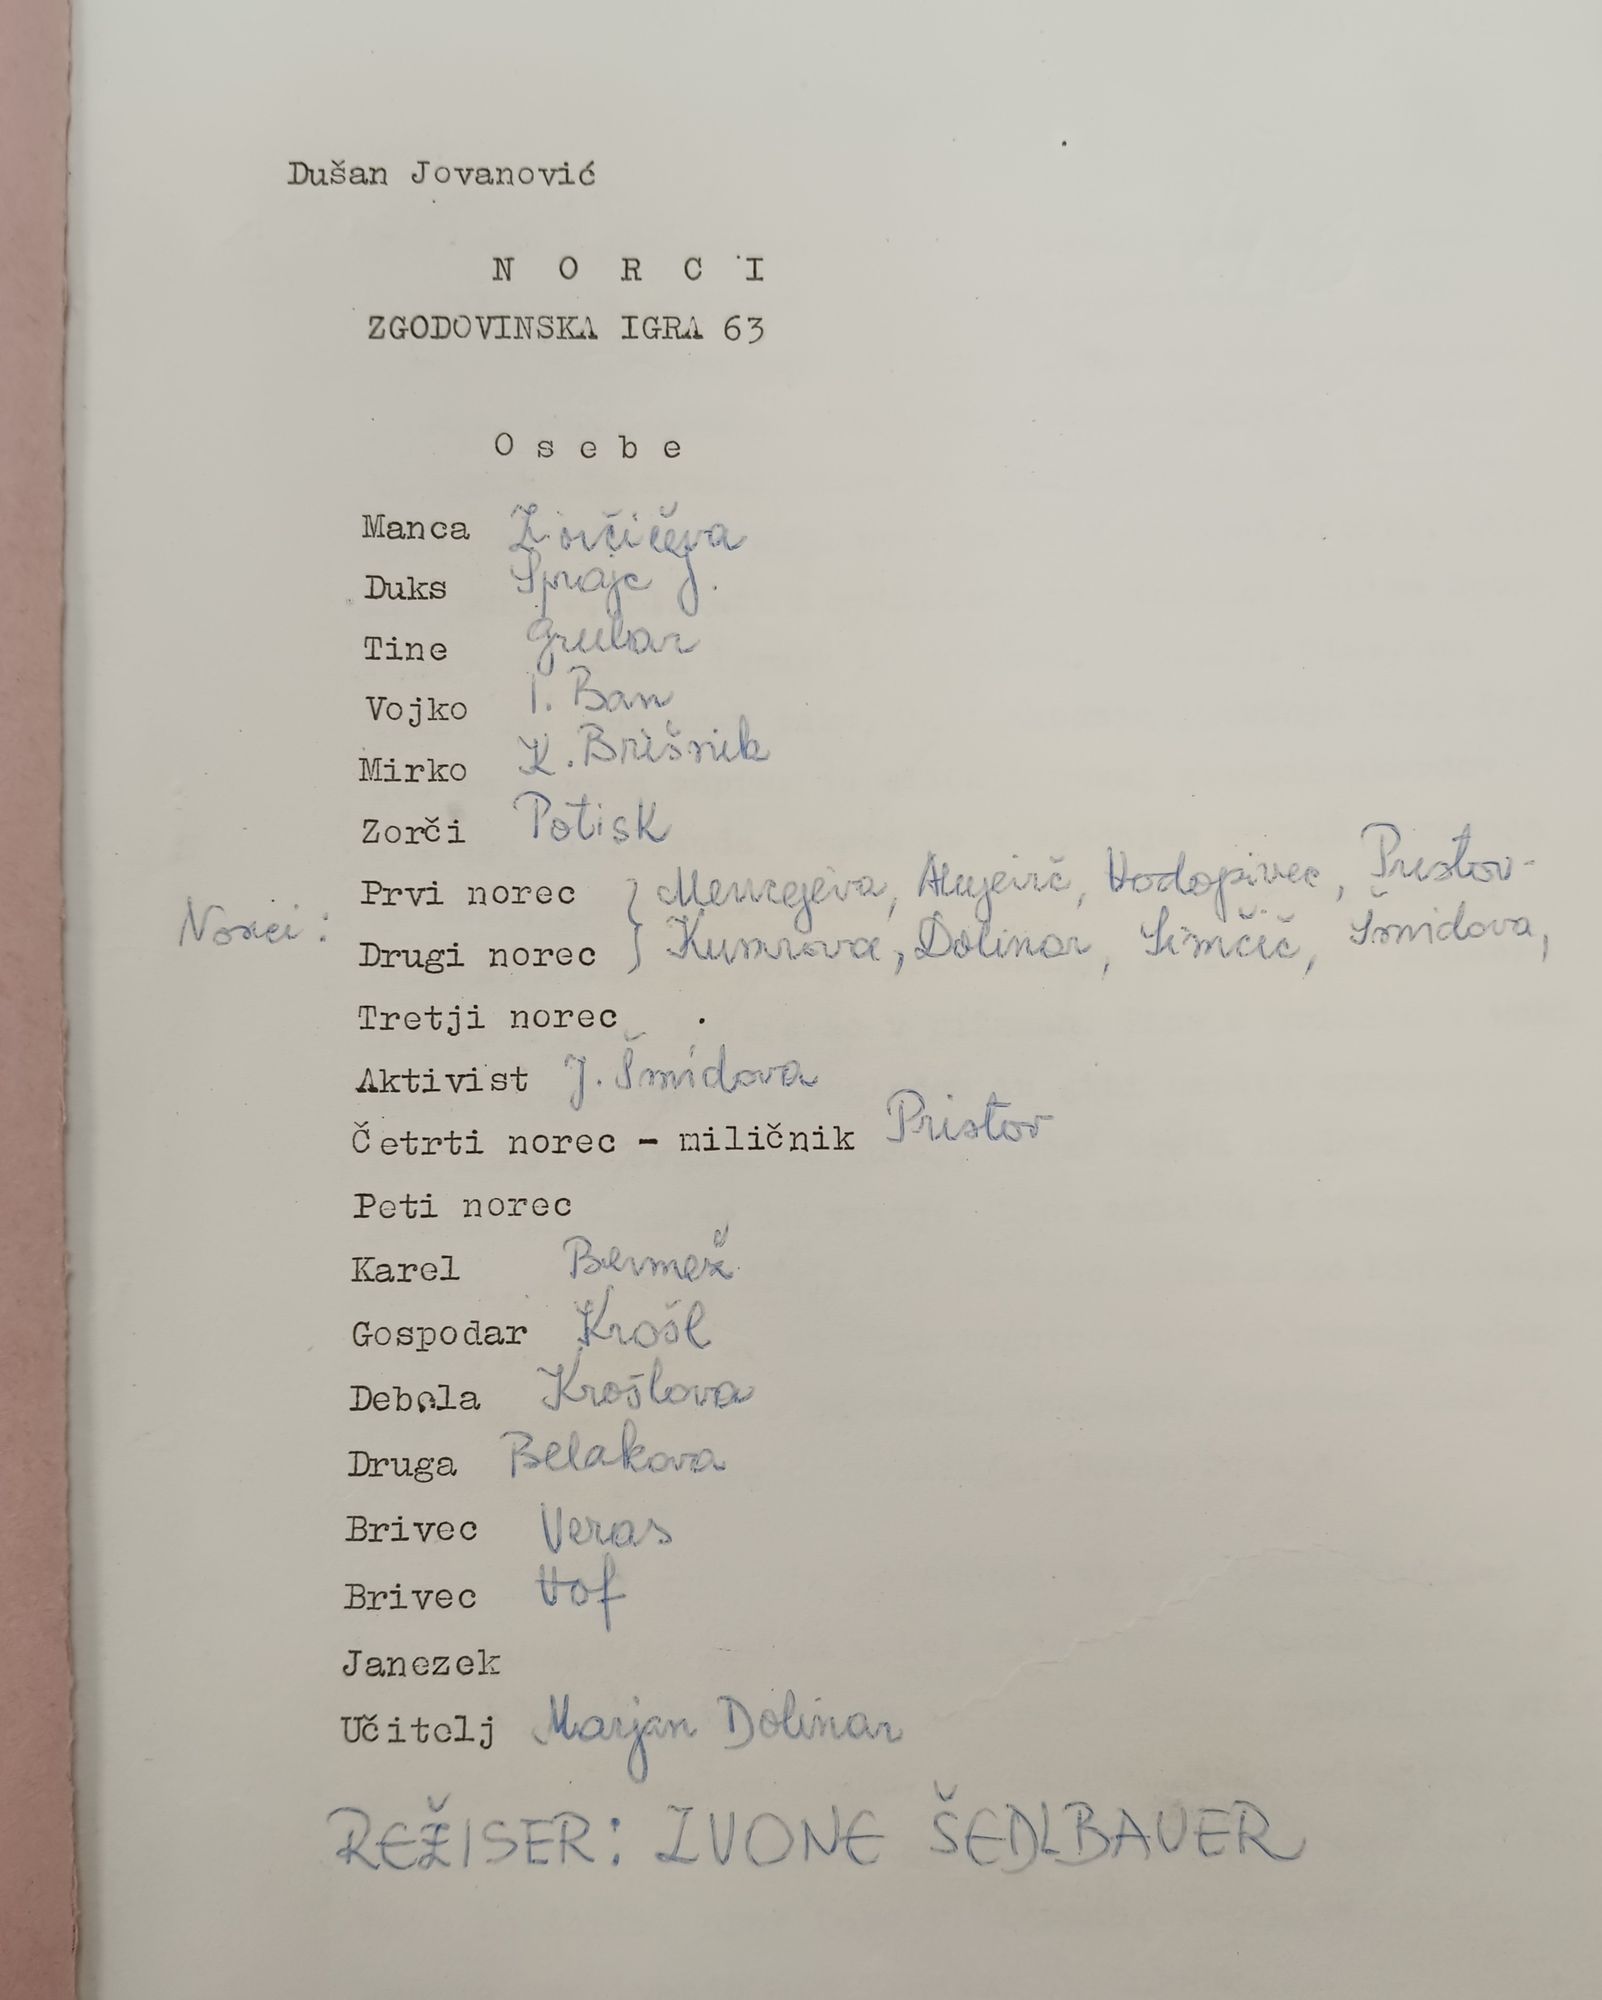 Dušan Jovanović
N O R C I
ZGODOVINSKA IGRA 63
O s e b e
Manca Zorčičeva
Duks Sprajc J.
Tine Grubar
Vojko I. Ban
Mirko K. Brišnik
Zorči Potisk
Prvi norec } Mencejeva, Alujevič, Vodopivec, Pristov-
Norci:
Drugi norec } Kumrova, Dolinar, Simčič, Šmidova,
Tretji norec
Aktivist J. Šmidova
Četrti norec - miličnik Pristov
Peti norec
Karel Bermež
Gospodar Krošl
Debela Krošlova
Druga Belakova
Brivec Veras
Brivec Hof
Janezek
Učitelj Marjan Dolinar
REŽISER: ZVONE ŠEDLBAUER